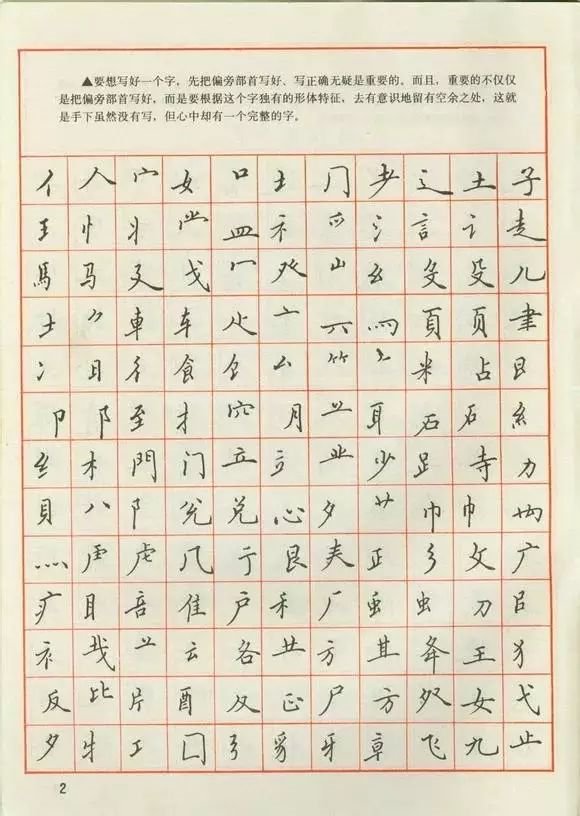 ▲要想写好一个字，先把偏旁部首写好、写正确无疑是重要的。而且，重要的不仅仅
是把偏旁部首写好，而是要根据这个字独有的形体特征，去有意识地留有空余之处，这就
是手下虽然没有写，但心中却有一个完整的字。
亻 人 宀 女 口 土 冂 耂 辶 土 子
王 忄 丬 龸 皿 礻 覀 氵 言 讠 走
馬 马 廴 戈 冖 癶 山 幺 殳 殳 儿
士 車 车 亠 罒 頁 页 聿
冫 日 彳 食 厶 米 占 艮
卩 阝 至 扌 穴 月 耳 石 石 糹
纟 木 門 门 立 业 少 𧾷 寺 力
貝 八 阝 兑 心 夕 艹 巾 巾
灬 虍 几 亍 艮 夫 正 彡 文 广
疒 目 音 隹 户 禾 厂 虫 虫 刀
衤 云 各 方 其 夅 王 犭
反 比 片 酉 及 正 尸 方 女 弋
夕 牛 工 囗 弓 豸 牙 章 飞 九 止
2